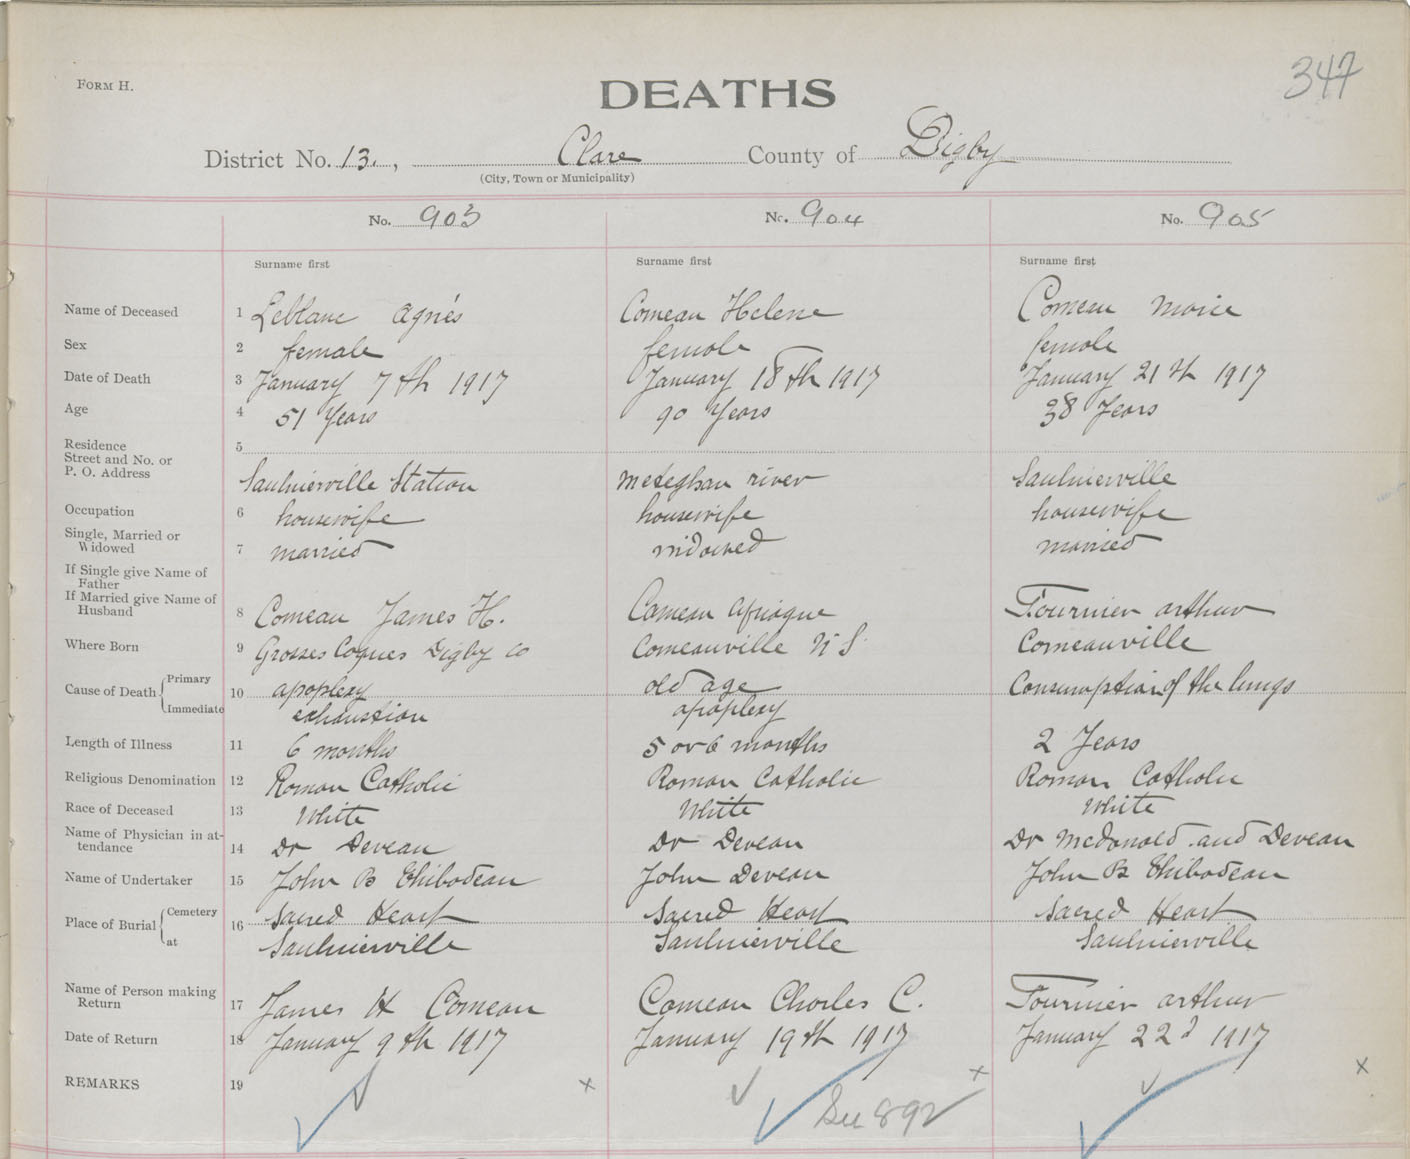 347
FORM H.
DEATHS
District No. 13., Clare County of Digby
(City, Town or Municipality)
No. 903 No. 904 No. 905
Surname first Surname first Surname first
Name of Deceased 1 Leblanc Agnés Comeau Helene Comeau Marie
Sex 2 female female female
Date of Death 3 January 7th 1917 January 18th 1917 January 21st 1917
Age 4 51 Years 90 Years 38 Years
Residence
Street and No. or 5
P. O. Address Saulnierville Station Meteghan river Saulnierville
Occupation 6 housewife housewife housewife
Single, Married or
Widowed 7 married widowed married
If Single give Name of
Father
If Married give Name of
Husband 8 Comeau James H. Comeau Fournier arthur
Where Born 9 Grosses Coques Digby Co Comeauville N S. Comeauville
Cause of Death Primary 10 apoplexy old age Consumption of the lungs
Immediate exhaustion apoplexy
Length of Illness 11 6 months 5 or 6 months 2 Years
Religious Denomination 12 Roman Catholic Roman Catholic Roman Catholic
Race of Deceased 13 White White White
Name of Physician in at-
tendance 14 Dr Deveau Dr Deveau Dr McDonald and Deveau
Name of Undertaker 15 John B Thibodeau John Deveau John B Thibodeau
Place of Burial Cemetery 16 Sacred Heart Sacred Heart Sacred Heart
at Saulnierville Saulnierville Saulnierville
Name of Person making
Return 17 James H Comeau Comeau Charles C. Fournier arthur
Date of Return 18 January 9th 1917 January 19th 1917 January 22d 1917
REMARKS 19 x x x
See 892